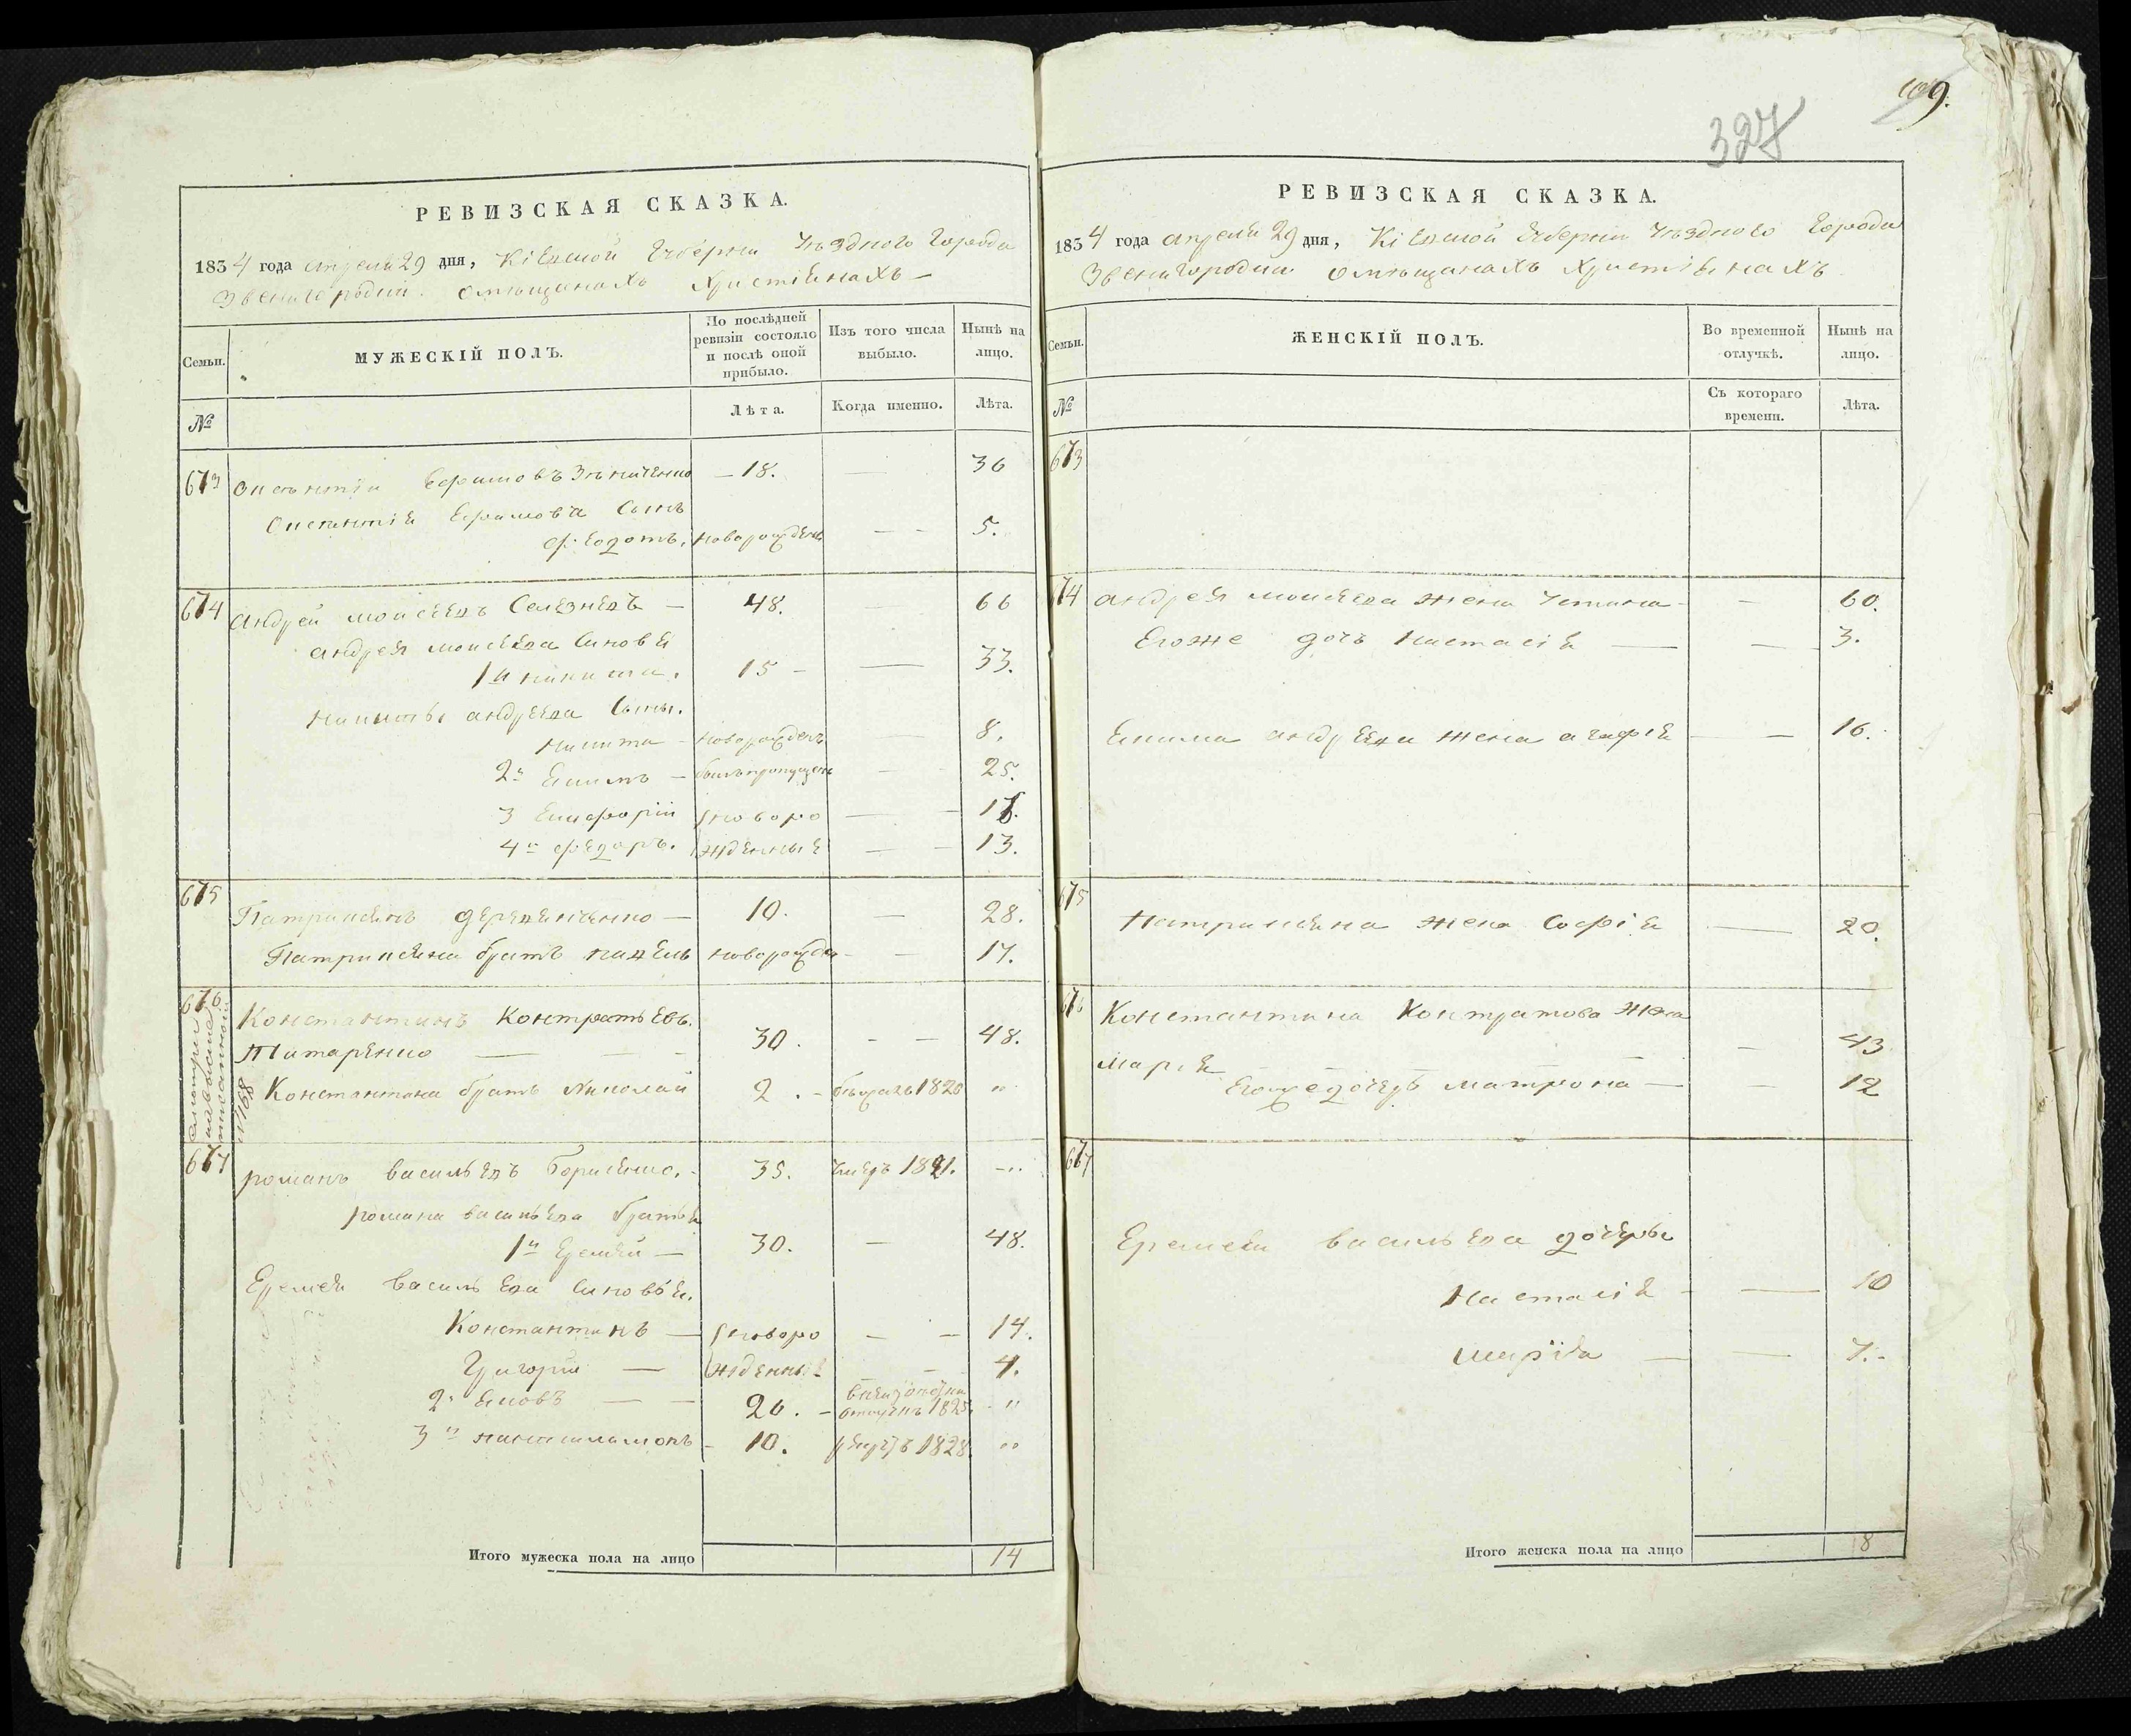 РЕВИЗСКАЯ СКАЗКА.
1834 года апреля 29 дня, Кіевской Губерніи Уѣзднаго Города
Звенигородки омѣщанахъ Христіянахъ —
Семьи.
МУЖЕСКІЙ ПОЛЪ.
По послѣдней ревизіи состояло и послѣ оной прибыло.
Изъ того числа выбыло.
Нынѣ на лицо.
№
Лѣта.
Когда именно.
Лѣта.
673 Ефимовъ — 18. — 36
Ефимова Сынъ
Федотъ. новорожденъ — - 5.
674 Андрей Моисеевъ Селезневъ — 48. — 66
Андрея Моисеева Сыновья
1й Никита. 15 — — 33.
Никиты Андреева Сынъ.
Никита — новорожденъ — 8.
2й Екимъ — былъ пропущенъ — 25.
3 новоро —
4й Федоръ. жденные — 13.
675 Патрикѣй — 10. — 28.
братъ Павелъ новорожденъ — 17.
676 Константинъ Контратьевъ.
Титаренко — 30. - - 48.
Константина братъ Николай 2. — бѣжалъ 1820 "
№ 168
667 Романъ Васильевъ Борисенко. - 35. умеръ 1821. -..
Романа Васильева братья
1й Еремей — 30. — 48.
Еремея Васильева Сыновья.
Константинъ — новоро — — 14.
Григорій — жденные — 4.
2й — — 26. — 1825. - "
3й - 10. 1828. "
Итого мужеска пола на лицо 14
109.
327
РЕВИЗСКАЯ СКАЗКА.
1834 года апреля 29 дня, Кіевской Губерніи Уѣзднаго Города
Звенигородки омѣщанахъ Христіянахъ.
Семьи.
ЖЕНСКІЙ ПОЛЪ.
Во временной отлучкѣ.
Нынѣ на лицо.
№
Съ котораго времени.
Лѣта.
673
674 Андрея Моисеева жена Устина — 60.
Егоже дочь Настасія — — 3.
Екима Андреева жена Агафія — — 16.
675
жена Софія — 20.
676 Константина Контратова жена
Марія — 43
Егоже дочерь Матрона — — 12
667
Еремея Васильева дочеры
Настасія - — 10
Марія — — 7.-
Итого женска пола на лицо 8